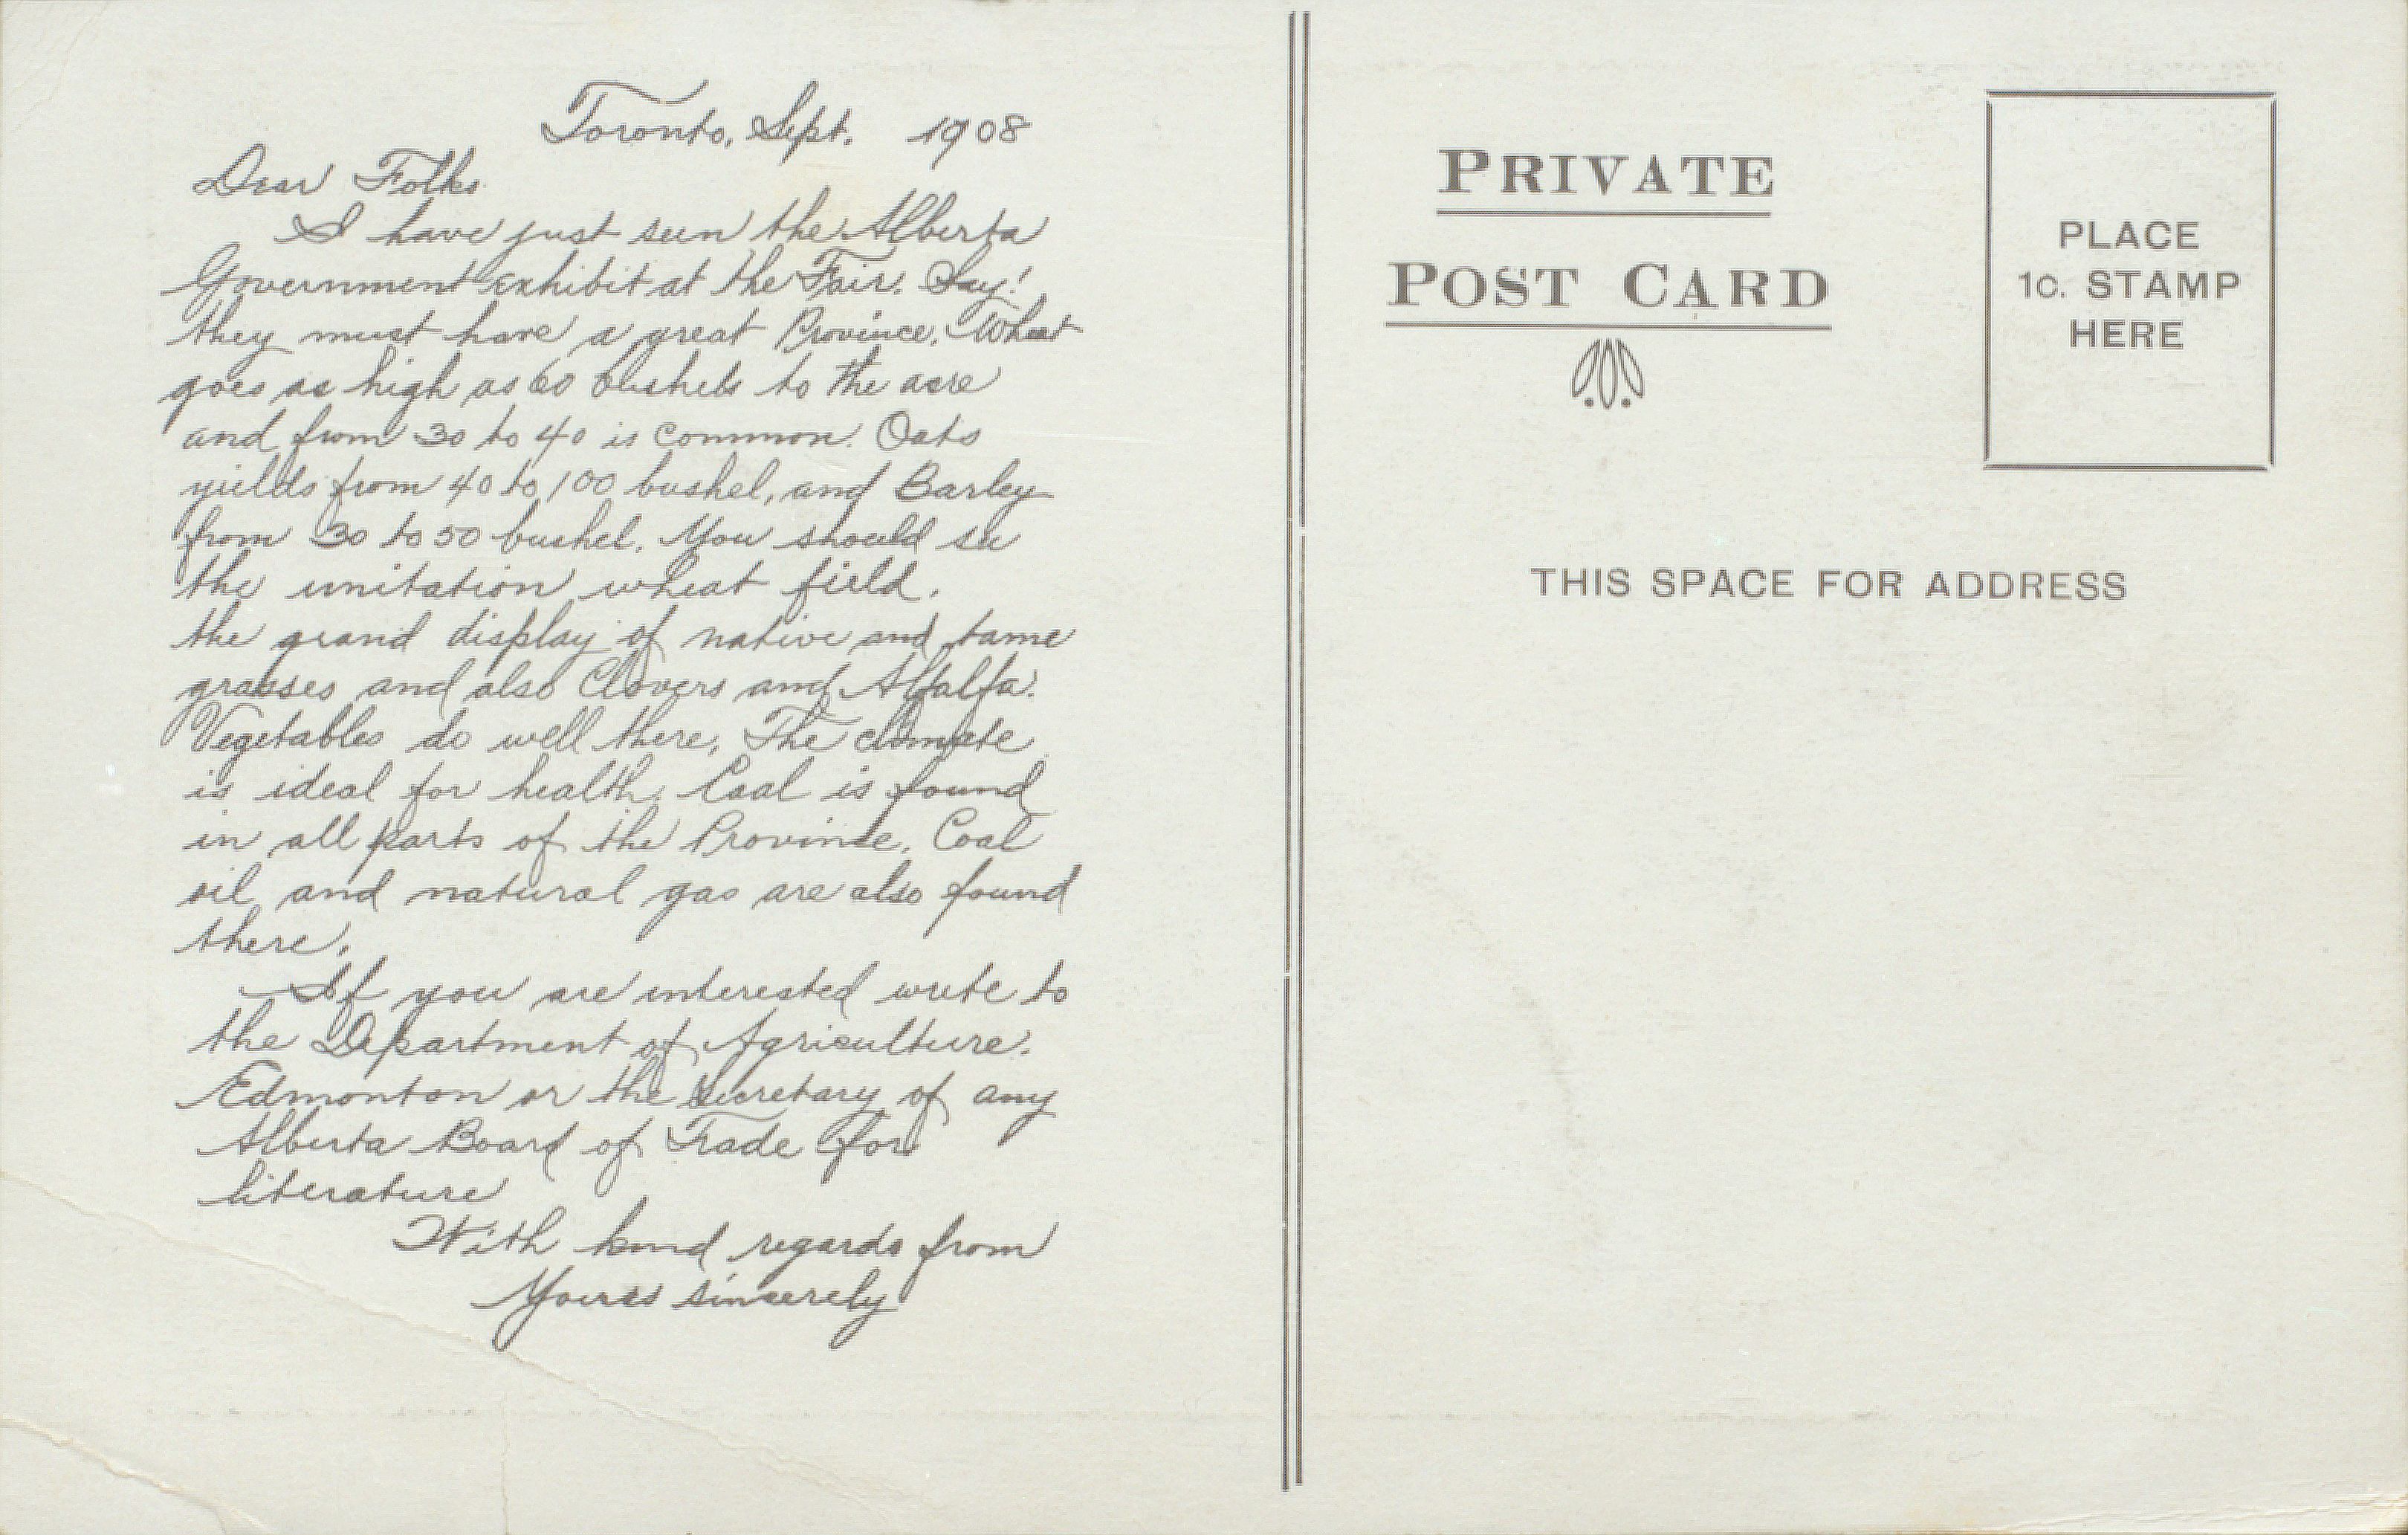 Toronto, Sept. 1908
Dear Folks
I have just seen the Alberta
Government exhibit at the Fair. Say!
they must have a great Province. Wheat
goes as high as 60 bushels to the acre
and from 30 to 40 is common. Oats
yields from 40 to 100 bushel, and Barley
from 30 to 50 bushel. You should see
the imitation wheat field.
the grand display of native and tame
grasses and also Clovers and Alfalfa.
Vegetables do well there, The climate
is ideal for health. Coal is found
in all parts of the Province. Coal
oil and natural gas are also found
there.
If you are interested write to
the Department of Agriculture.
Edmonton or the Secretary of any
Alberta Board of Trade for
literature
With kind regards from
Yours sincerely
PRIVATE
POST CARD
PLACE
1C. STAMP
HERE
THIS SPACE FOR ADDRESS